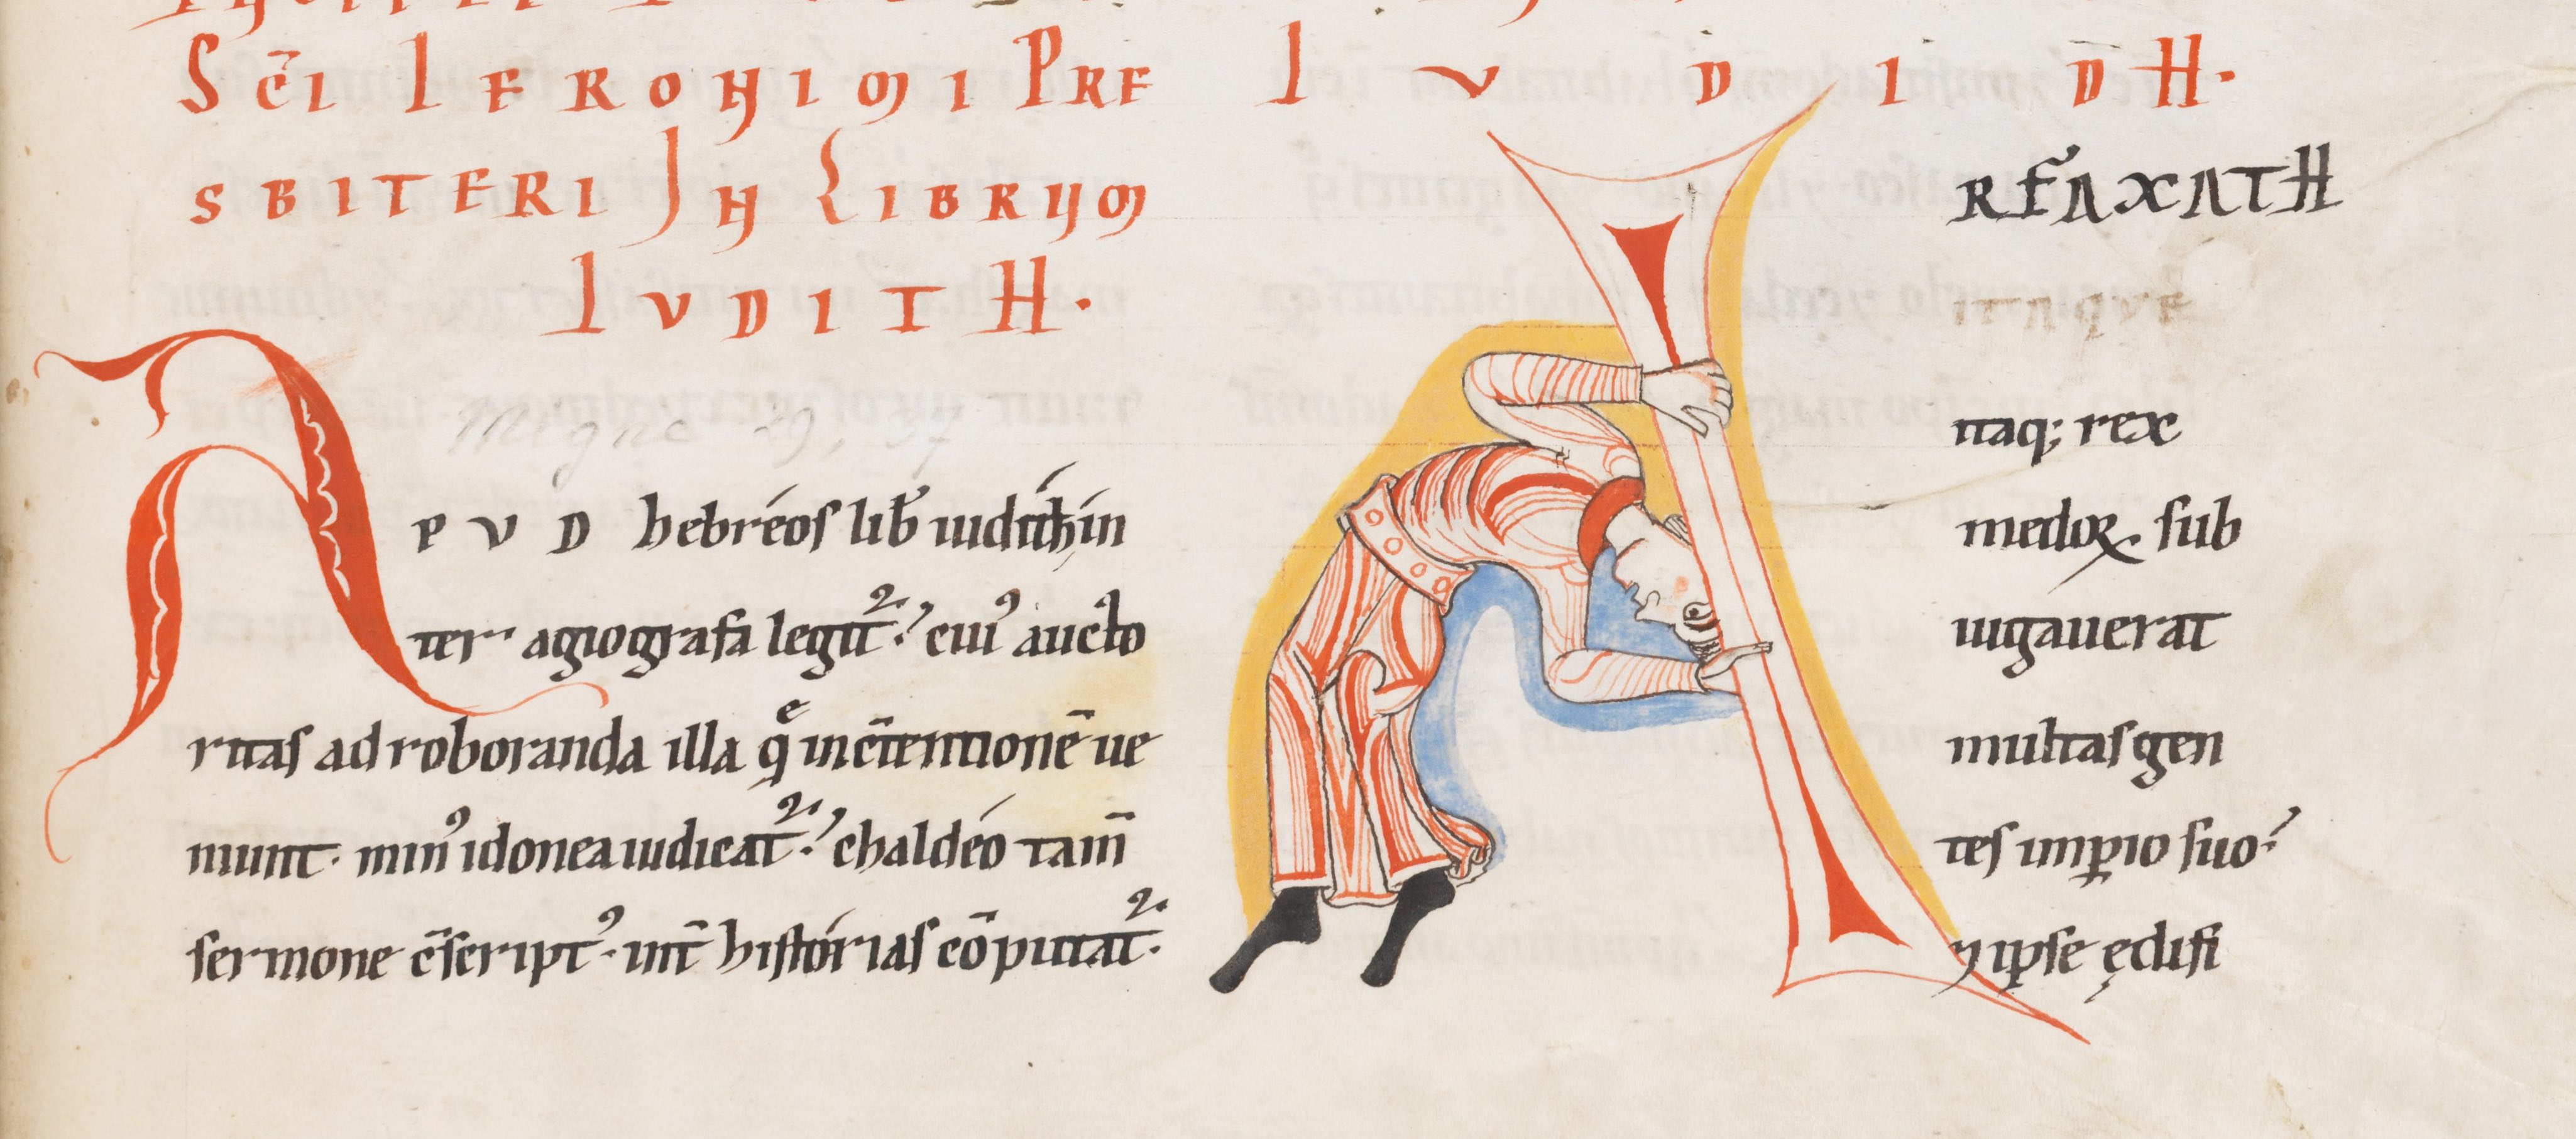 Sc̄i Ieronimi Pre
sbiteri In Librum
Iudith.
Migne 29, 37
Apud hebréos lib̄ iudith in
ter agiografa legit᷑. cui᷒ aucto
ritas ad roboranda illa qͤ in c̄tentionē ue
niunt. min᷒ idonea iudicat᷑. chaldéo tam̄
sermone c̄script᷒. int̄ histórias cōputat᷑.
Iudidh.
Arfaxath
itaque
itaq; rex
medoꝝ sub
iugauerat
multas gen
tes imꝑio suo.
⁊ ipse ędifi